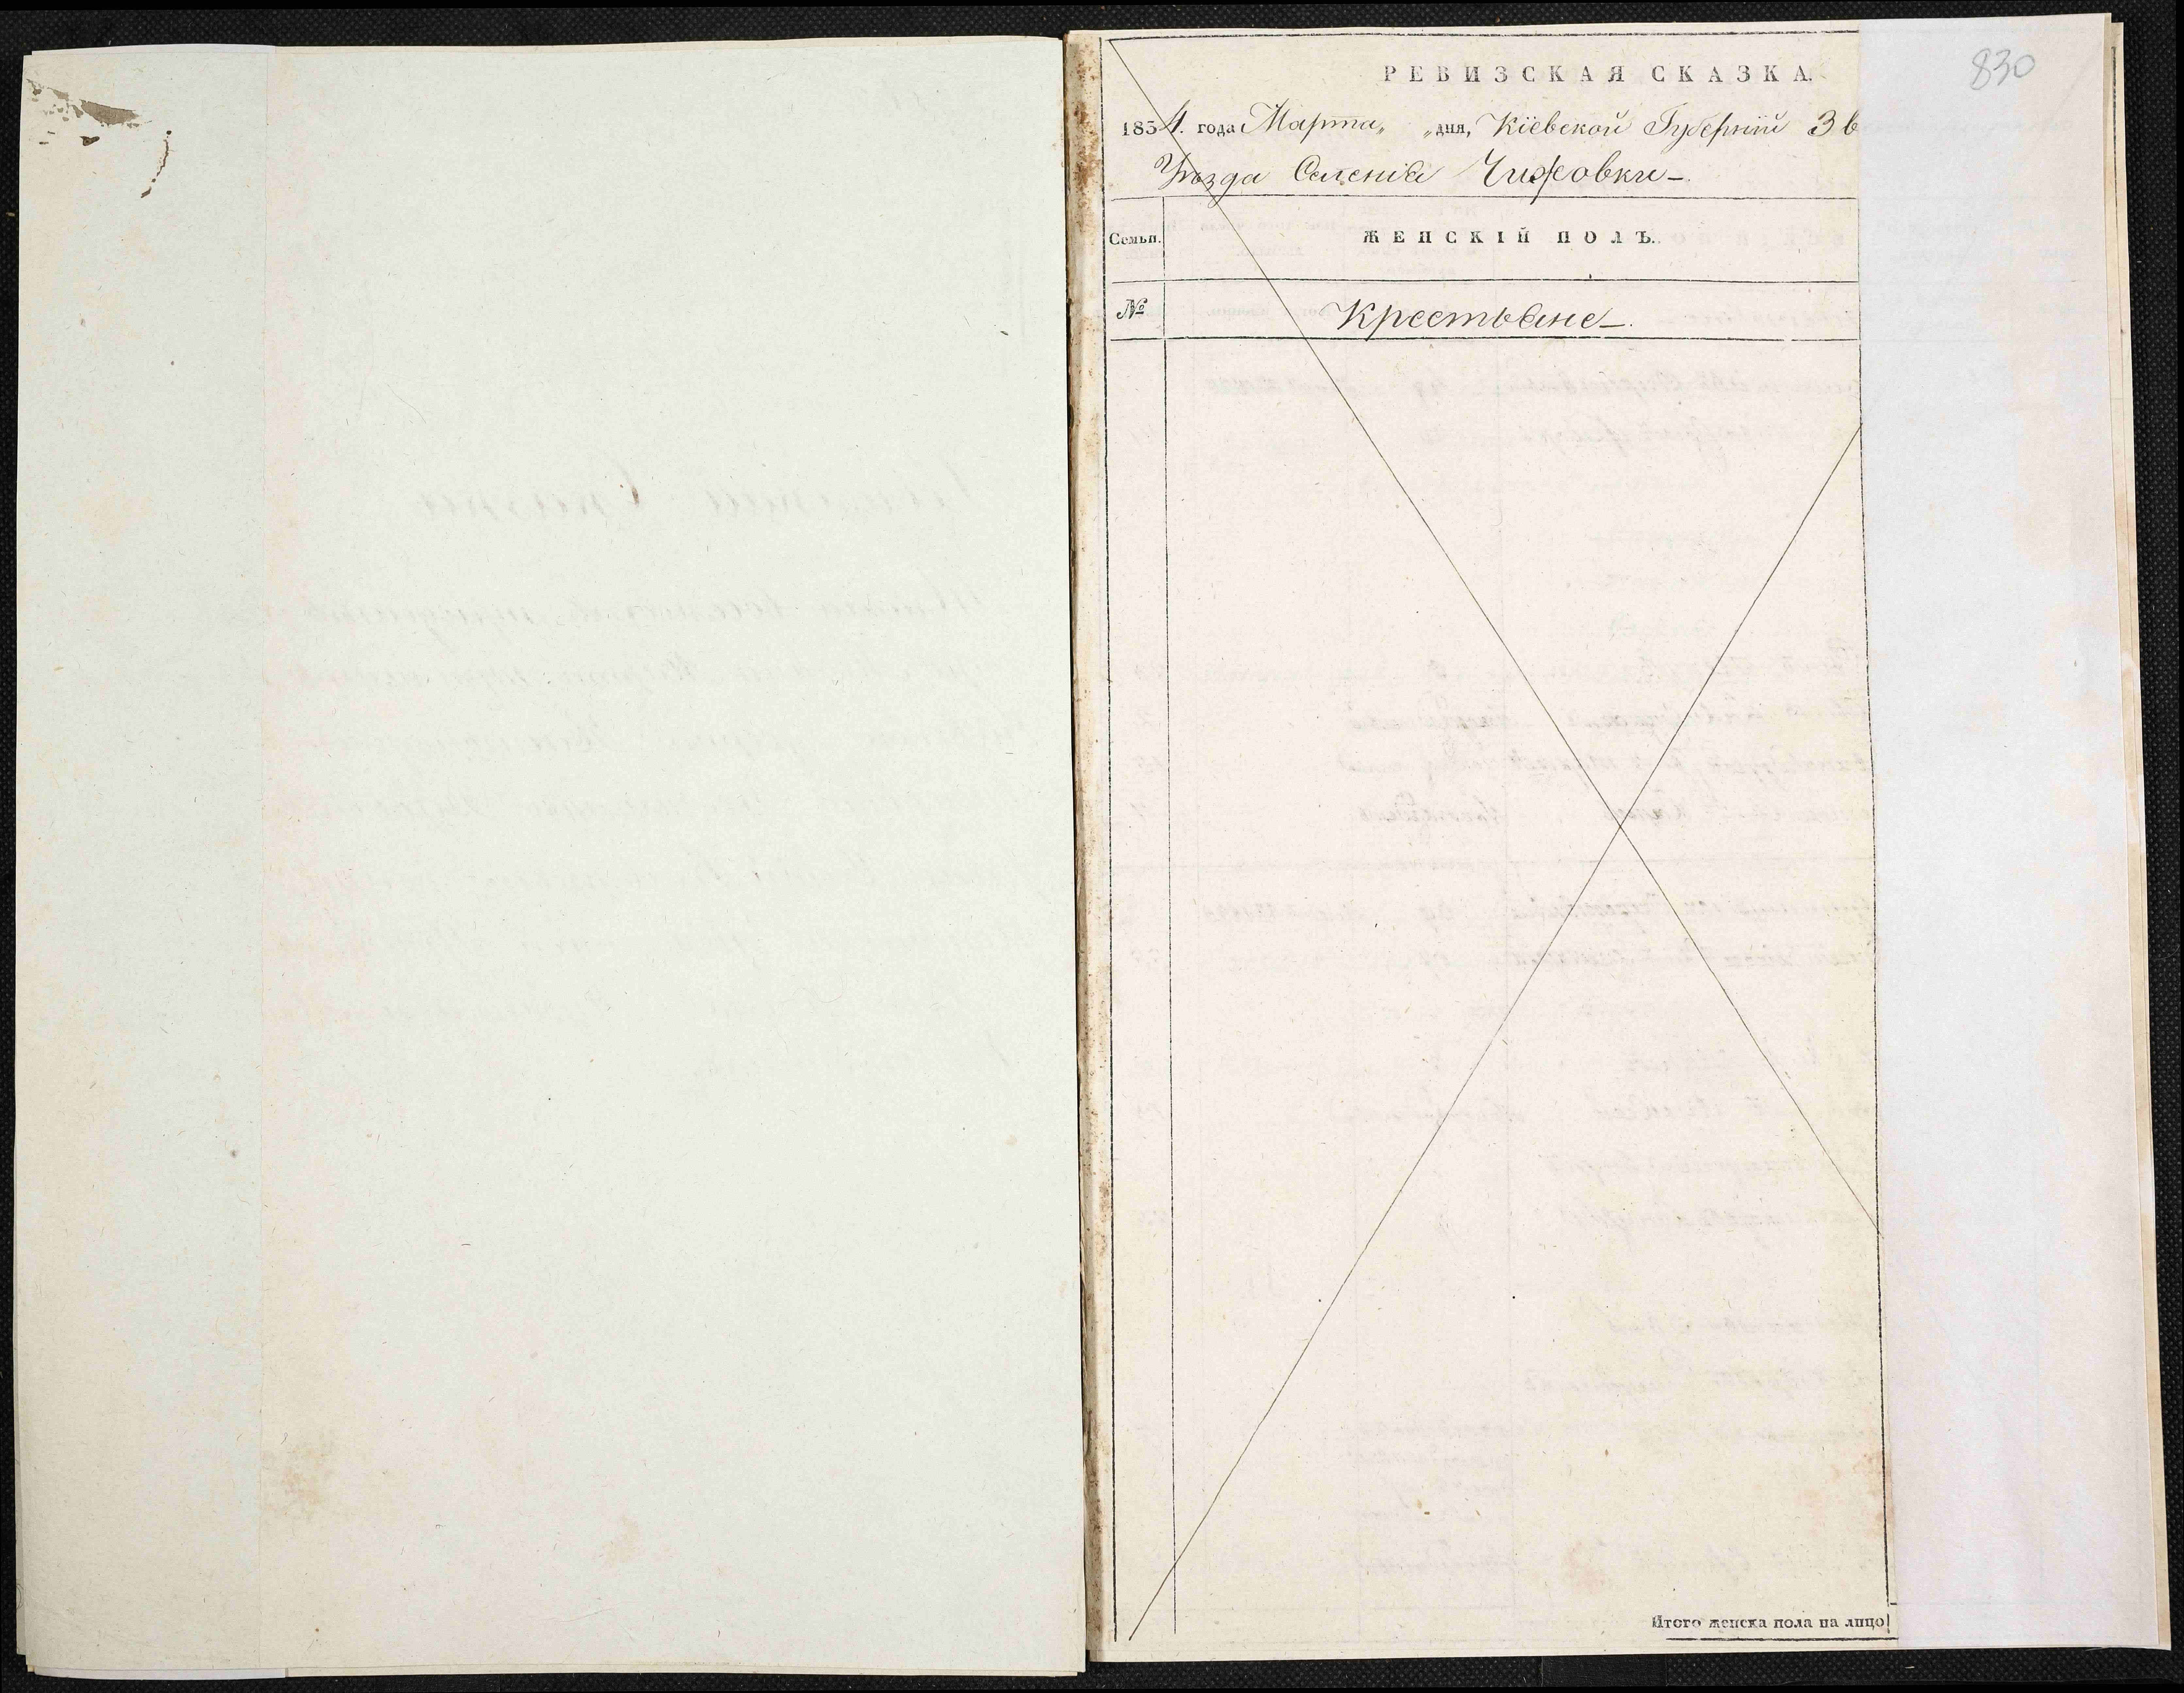 830
РЕВИЗСКАЯ СКАЗКА.
1854. года Марта „ „ дня, Кіевской Губерніи Зв
Уѣзда Селенія Чижовки
Семьи. ЖЕНСКІЙ ПОЛЪ.
№ Крестьяне
Итого женска пола на лицо